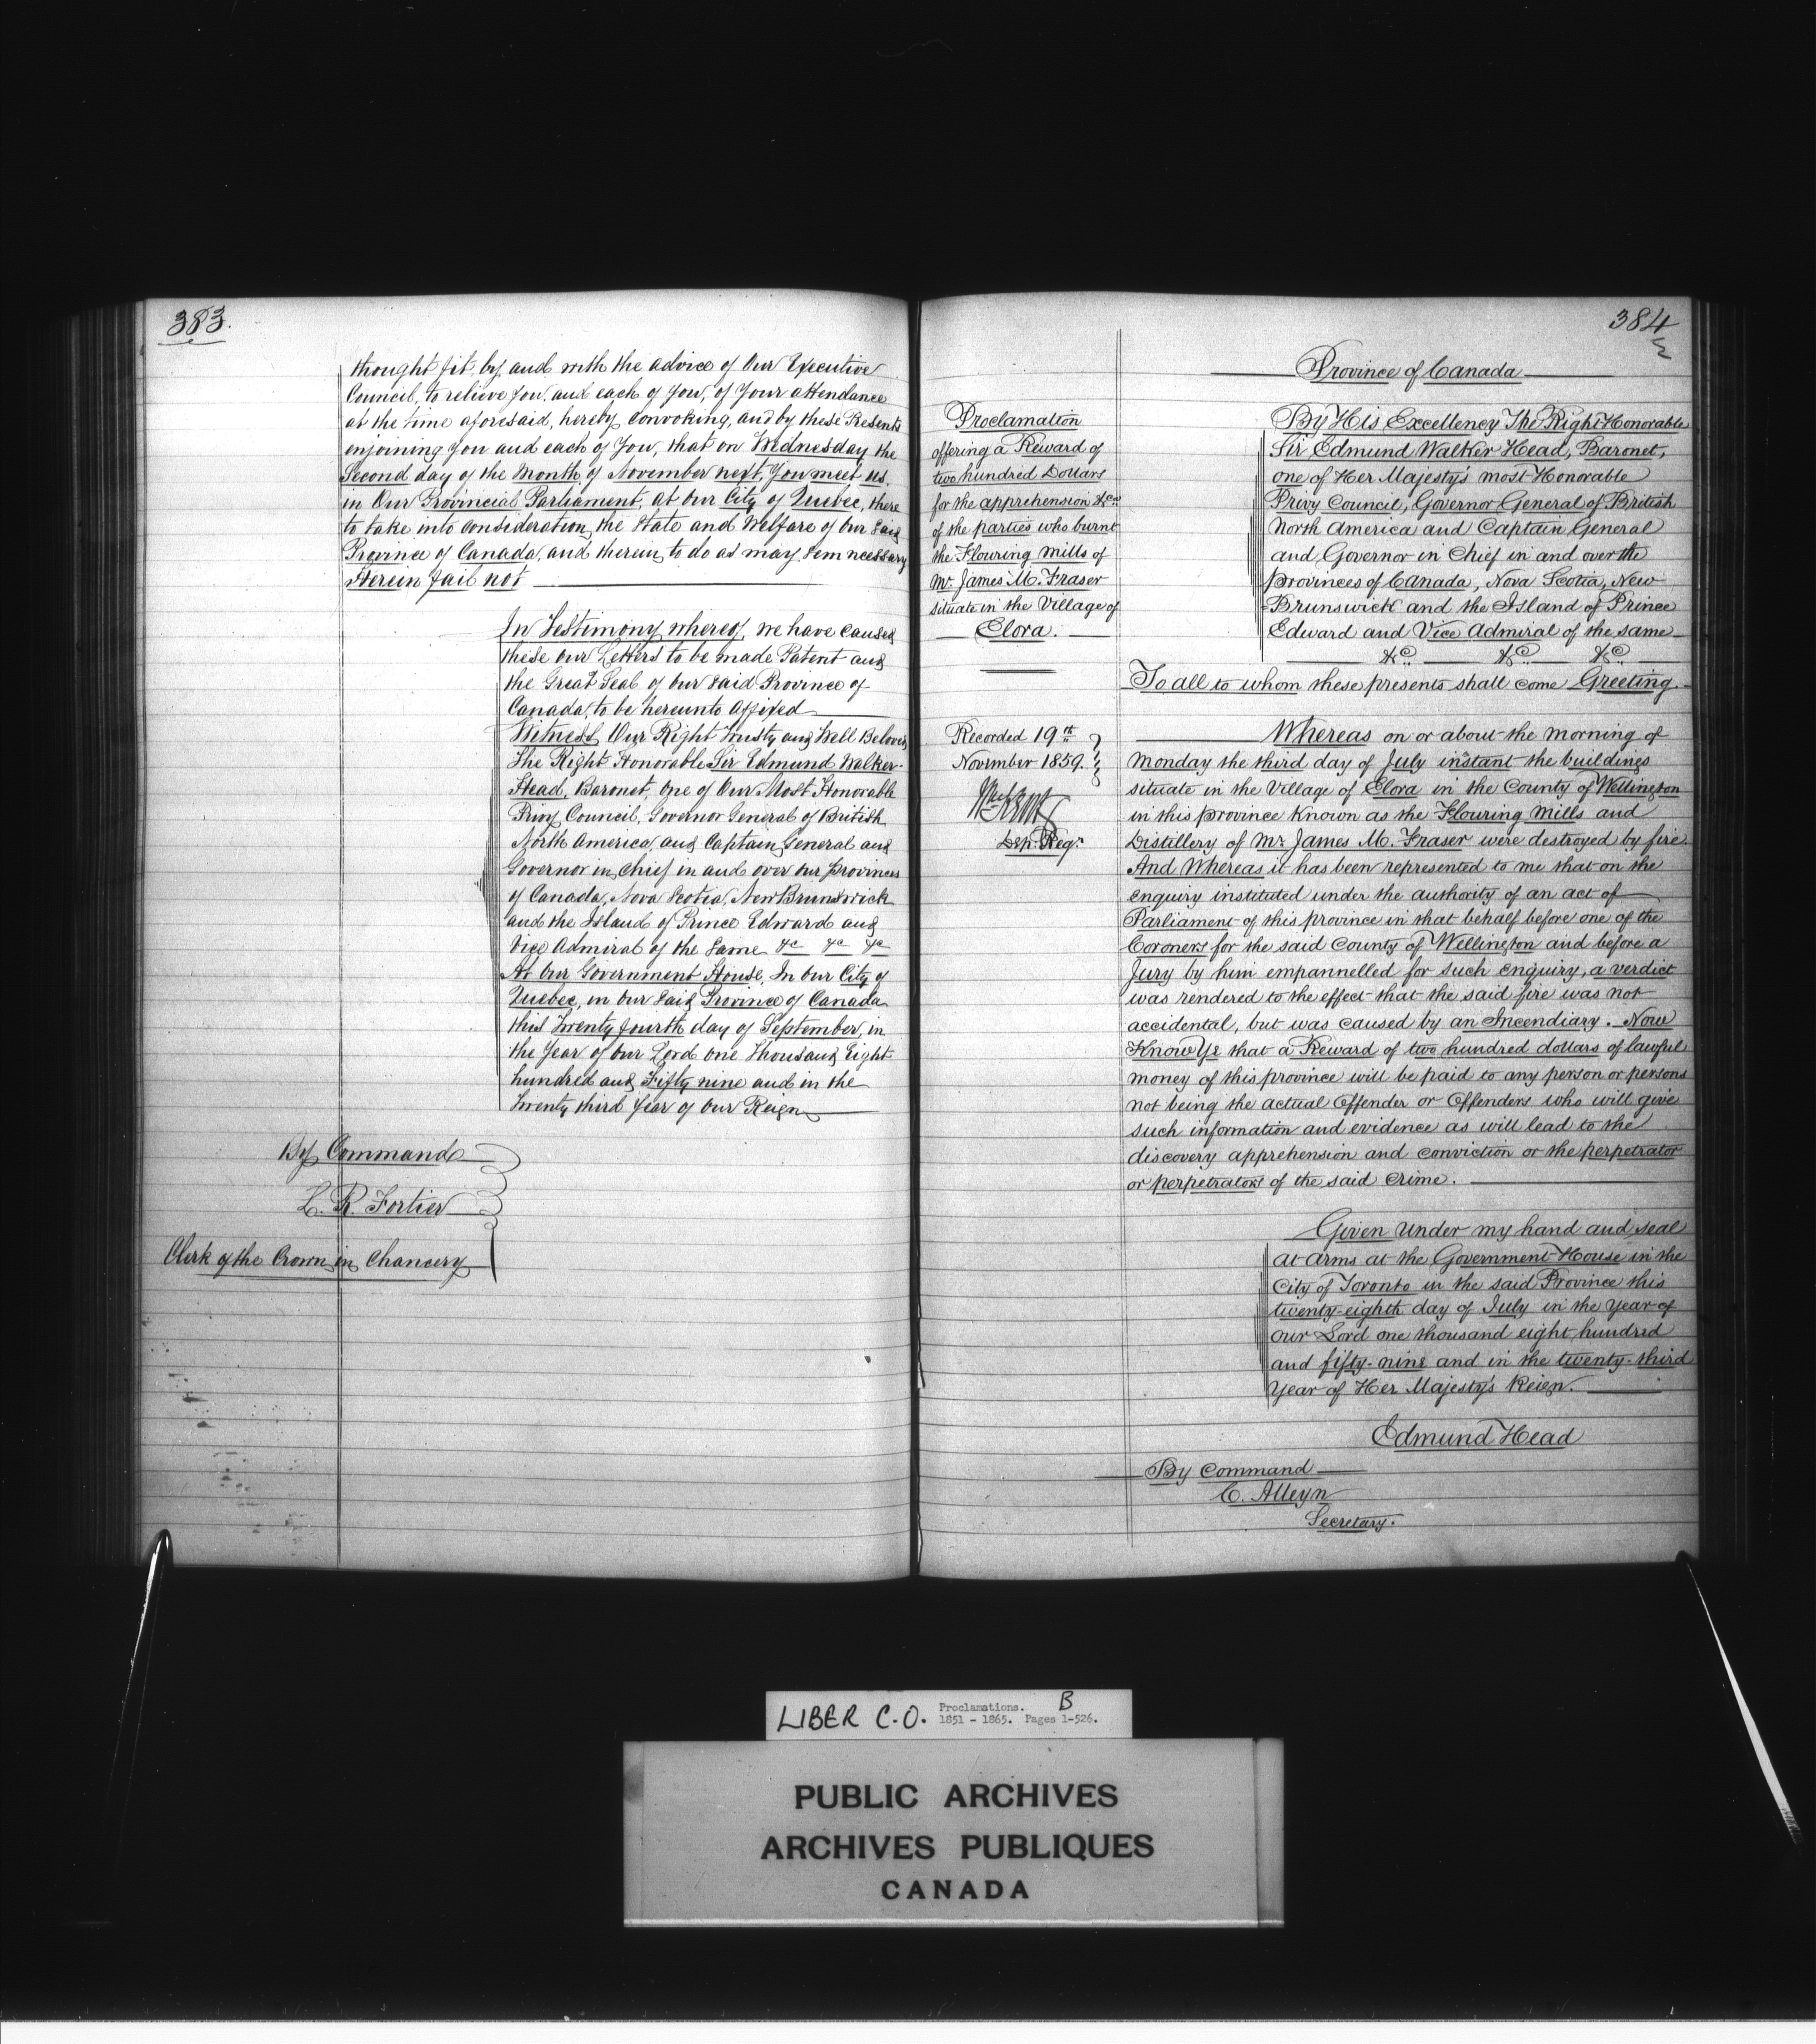 383.
thought fit, by, and with the advice of Our Executive
Council, to relieve you, and each of you, of Your attendance
at the time aforesaid, hereby convoking, and by these Presents
enjoining you and each of You, that on Wednesday the
Second day of the Month of November next, You meet us,
in Our Provincial Parliament, at Our City of Quebec, there
to take into consideration, the State and Welfare of Our Said
Province of Canada, and therein, to do as may seem necessary
Herein fail not
In Testimony whereof, we have caused
these our Letters to be made Patent and
the Great Seal of Our said Province of
Canada, to be hereunto affixed
Witness, Our Right Trusty and Well Beloved
The Right Honorable Sir Edmund Walker
Head, Baronet, One of Our Most Honorable
Privy Council, Governor General of British
North America, and Captain General and
Governor in Chief in and over our Provinces
of Canada, Nova Scotia, New Brunswick
and the Island of Prince Edward and
Vice Admiral of the Same &c &c &c
At Our Government House, In our City of
Quebec, in our Said Province of Canada
this Twenty fourth day of September, in
the Year of our Lord one Thousand Eight
hundred and Fifty nine and in the
Twenty third Year of Our Reign
By Command
L. R. Fortier
Clerk of the Crown in Chancery
384
Province of Canada
Proclamation
offering a Reward of
two hundred Dollars
for the apprehension &ca
of the parties who burnt
the Flouring Mills of
Mr James M. Fraser
situate in the Village of
Elora.
Recorded 19th
November 1859.
Dep. Regr
By His Excellency The Right Honorable
Sir Edmund Walker Head, Baronet,
one of Her Majesty's most Honorable
Privy Council, Governor General of British
North America and Captain General
and Governor in Chief in and over the
provinces of Canada, Nova Scotia, New
Brunswick and the Island of Prince
Edward and Vice Admiral of the same
&c. &c. &c.
To all to whom these presents shall come Greeting.
Whereas on or about the morning of
Monday the third day of July instant the buildings
situate in the Village of Elora in the County of Wellington
in this province Known as the Flouring Mills and
Distillery of Mr James M. Fraser were destroyed by fire.
And Whereas it has been represented to me that on the
enquiry instituted under the authority of an act of
Parliament of this province in that behalf before one of the
Coroners for the said County of Wellington and before a
Jury by him empannelled for such enquiry, a verdict
was rendered to the effect that the said fire was not
accidental, but was caused by an Incendiary. Now
Know Ye that a Reward of two hundred dollars of lawful
money of this province will be paid to any person or persons
not being the actual Offender or Offenders who will give
such information and evidence as will lead to the
discovery apprehension and conviction or the perpetrator
or perpetrators of the said crime.
Given under my hand and seal
at arms at the Government House in the
City of Toronto in the said Province this
twenty-eighth day of July in the year of
our Lord one thousand eight hundred
and fifty-nine and in the twenty-third
year of Her Majesty's Reign.
Edmund Head
By Command
C. Alleyn
Secretary.
LIBER C.O. Proclamations. B
1851 - 1865. Pages 1-526.
PUBLIC ARCHIVES
ARCHIVES PUBLIQUES
CANADA